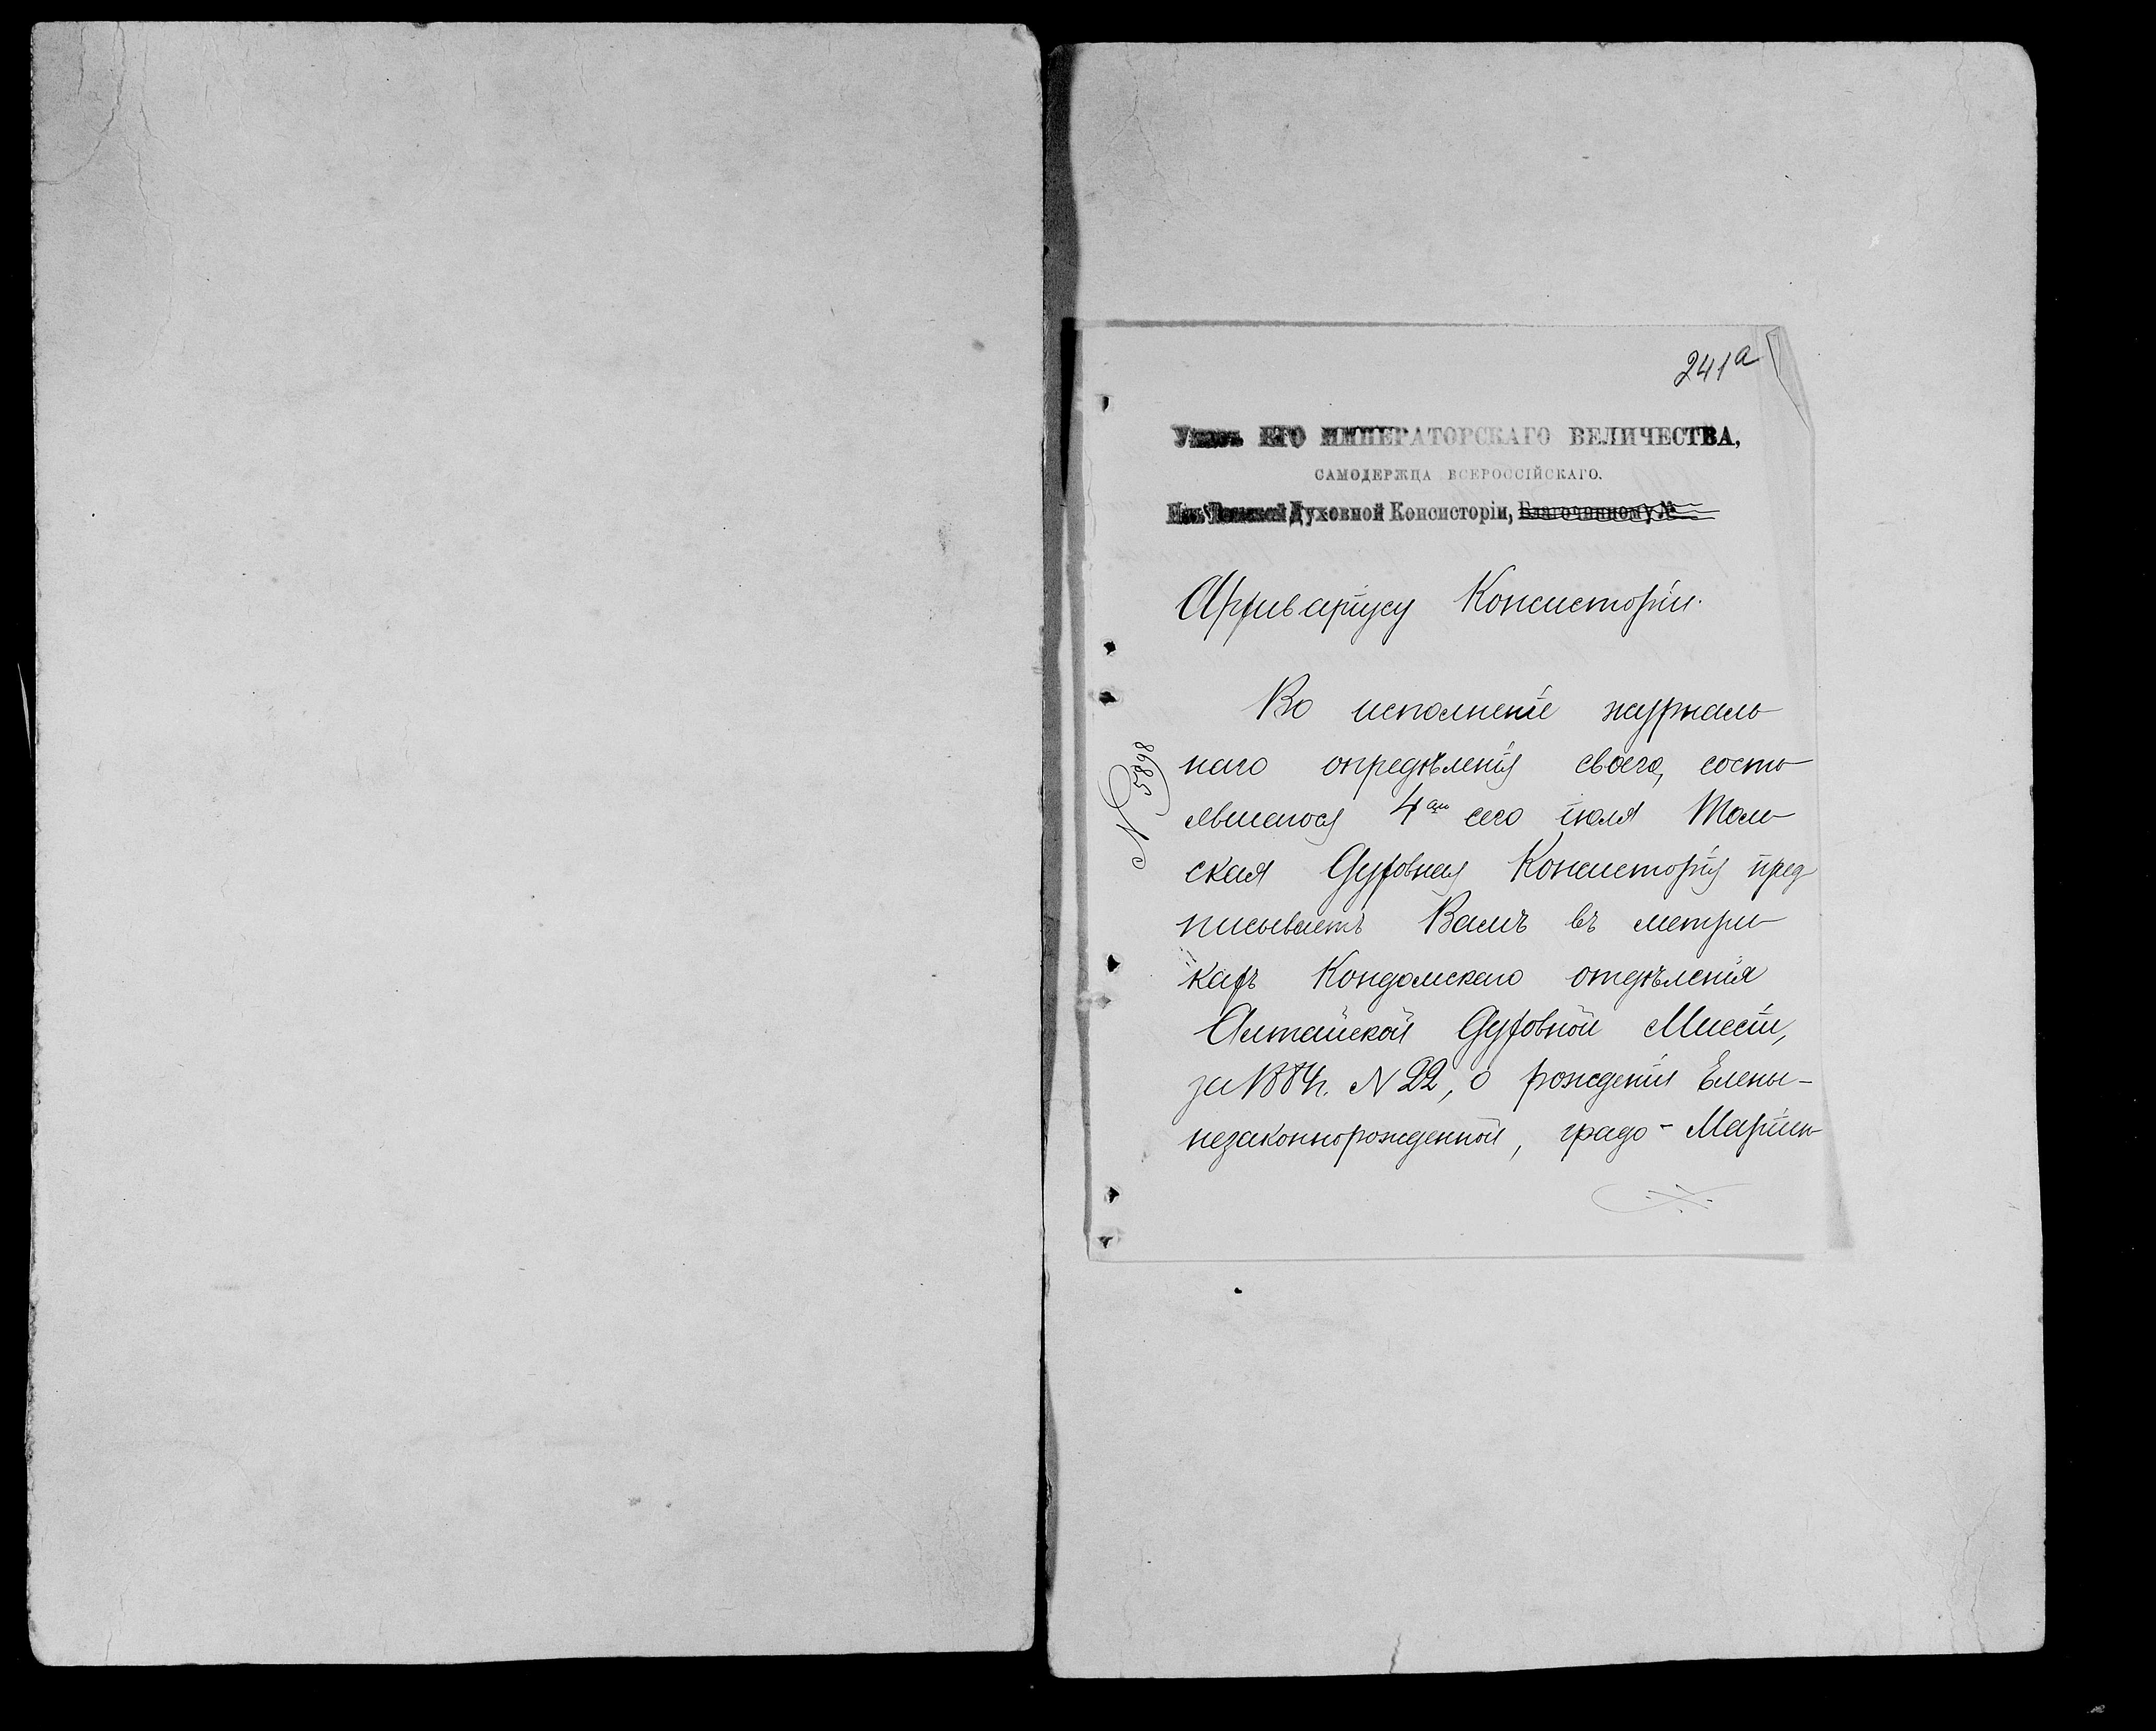 241а
Указъ ЕГО ИМПЕРАТОРСКАГО ВЕЛИЧЕСТВА,
САМОДЕРЖЦА ВСЕРОССІЙСКАГО.
Изъ Томской Духовной Консисторіи, Благочинному №
Архиваріусу Консисторіи.
№ 5898
Во исполненіе журналь
наго опредѣленія своего, состо
явшагося 4го сего іюля Том
ская Духовная Консисторія пред
писываетъ Вамъ въ метри
кахъ Кондомскаго отдѣленія
Алтайской Духовной Миссіи,
за 1884г. № 22, о рожденіи Елены-
незаконнорожденной, градо-Маріин